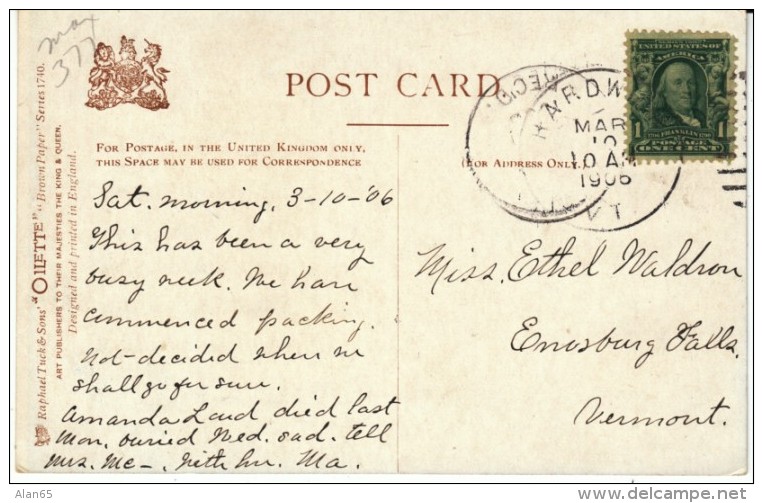 may
377
POST CARD.
FOR POSTAGE, IN THE UNITED KINGDOM ONLY,
THIS SPACE MAY BE USED FOR CORRESPONDENCE
(FOR ADDRESS ONLY.)
Raphael Tuck & Sons' "OILETTE" "Brown Paper" Series 1740.
ART PUBLISHERS TO THEIR MAJESTIES THE KING & QUEEN.
Designed and printed in England.
HARDW
MAR
10
10 AM
1906
VT
UNITED STATES OF
AMERICA
1 FRANKLIN 1
POSTAGE
ONE CENT
Sat. morning, 3-10-'06
This has been a very
busy week. We have
commenced packing.
Not decided when we
shall go for sure.
Amanda died last
Mon. buried Wed. sad. tell
Mrs. Mc-. Ma.
Miss. Ethel Waldron
Enosburg Falls.
Vermont.
Alan65
delcampe.net